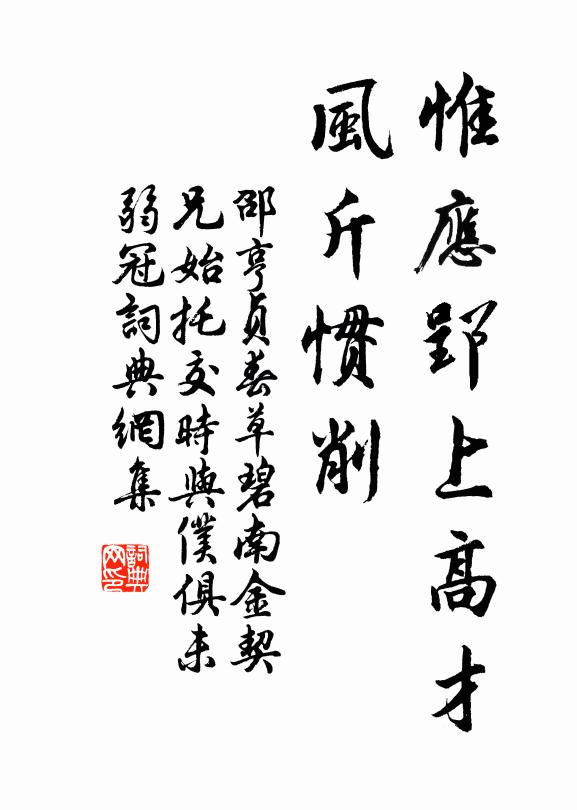 惟應郢上高才
風斤慣削
邵亨貞春草碧南金契
兄始托交時與僕俱未
弱冠詞典網集
詞典网印